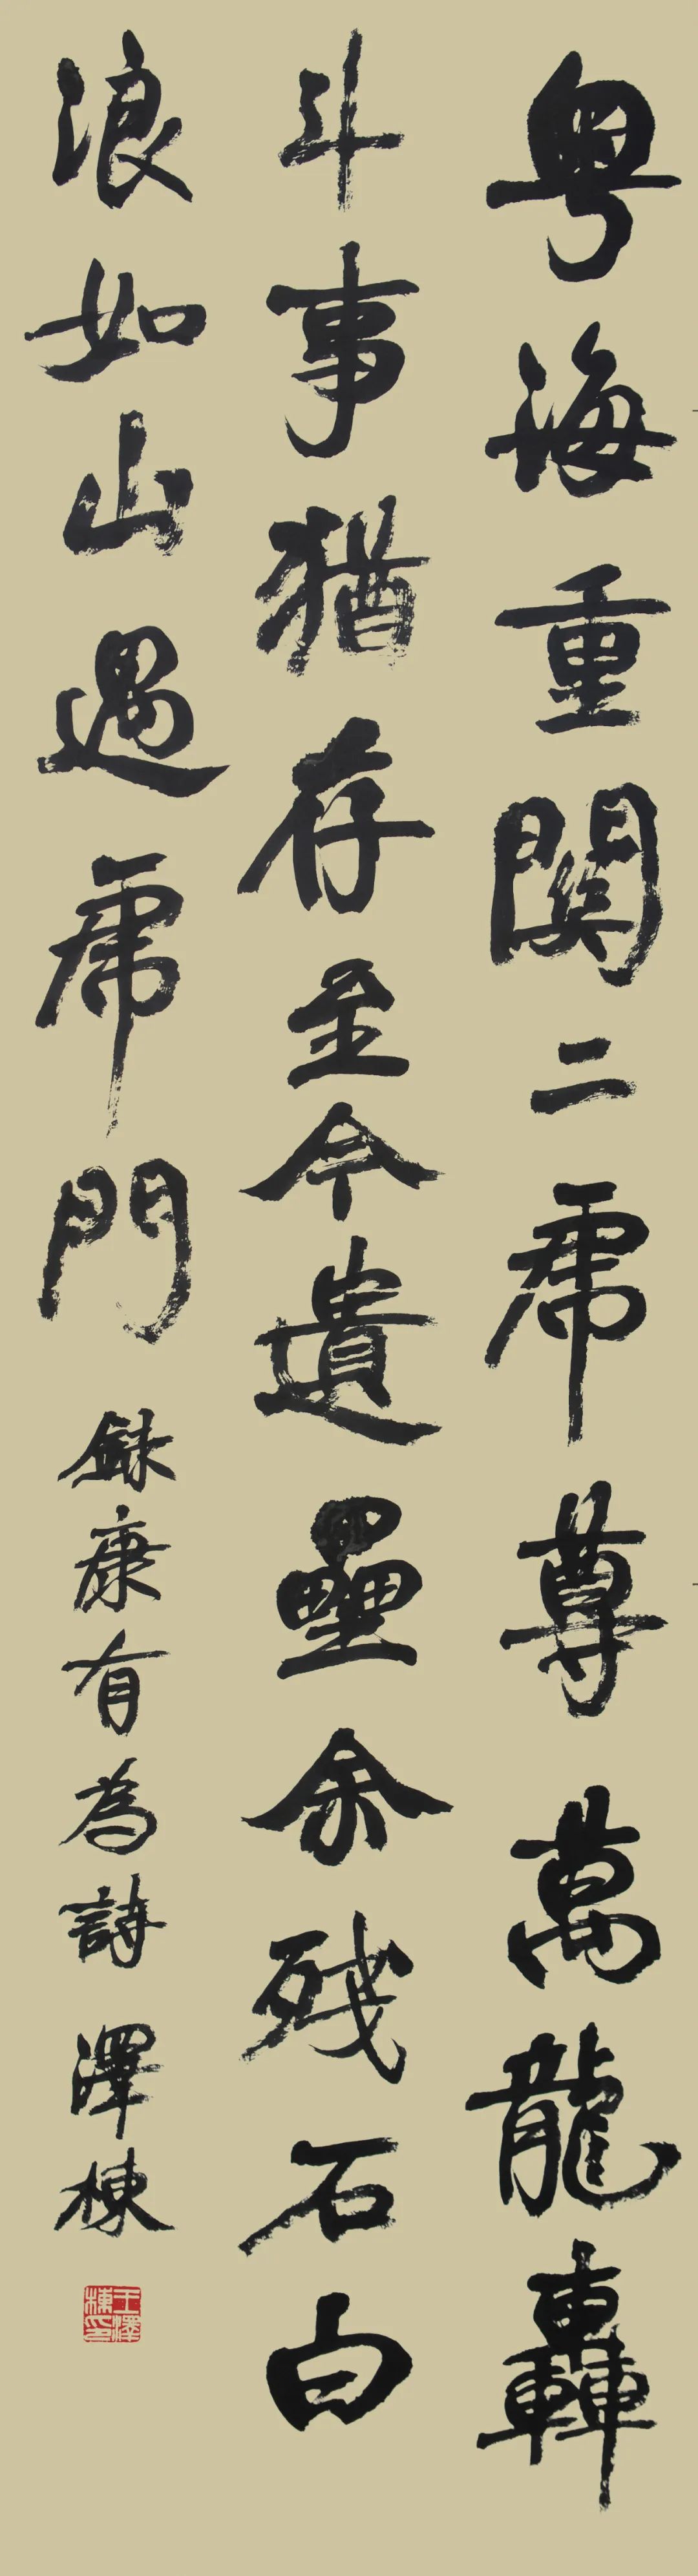 粤海重關二虎尊萬龍轟
斗事猶存至今遺壘余殘石白
浪如山過虎門 録康有為詩 澤棟
王澤棟印